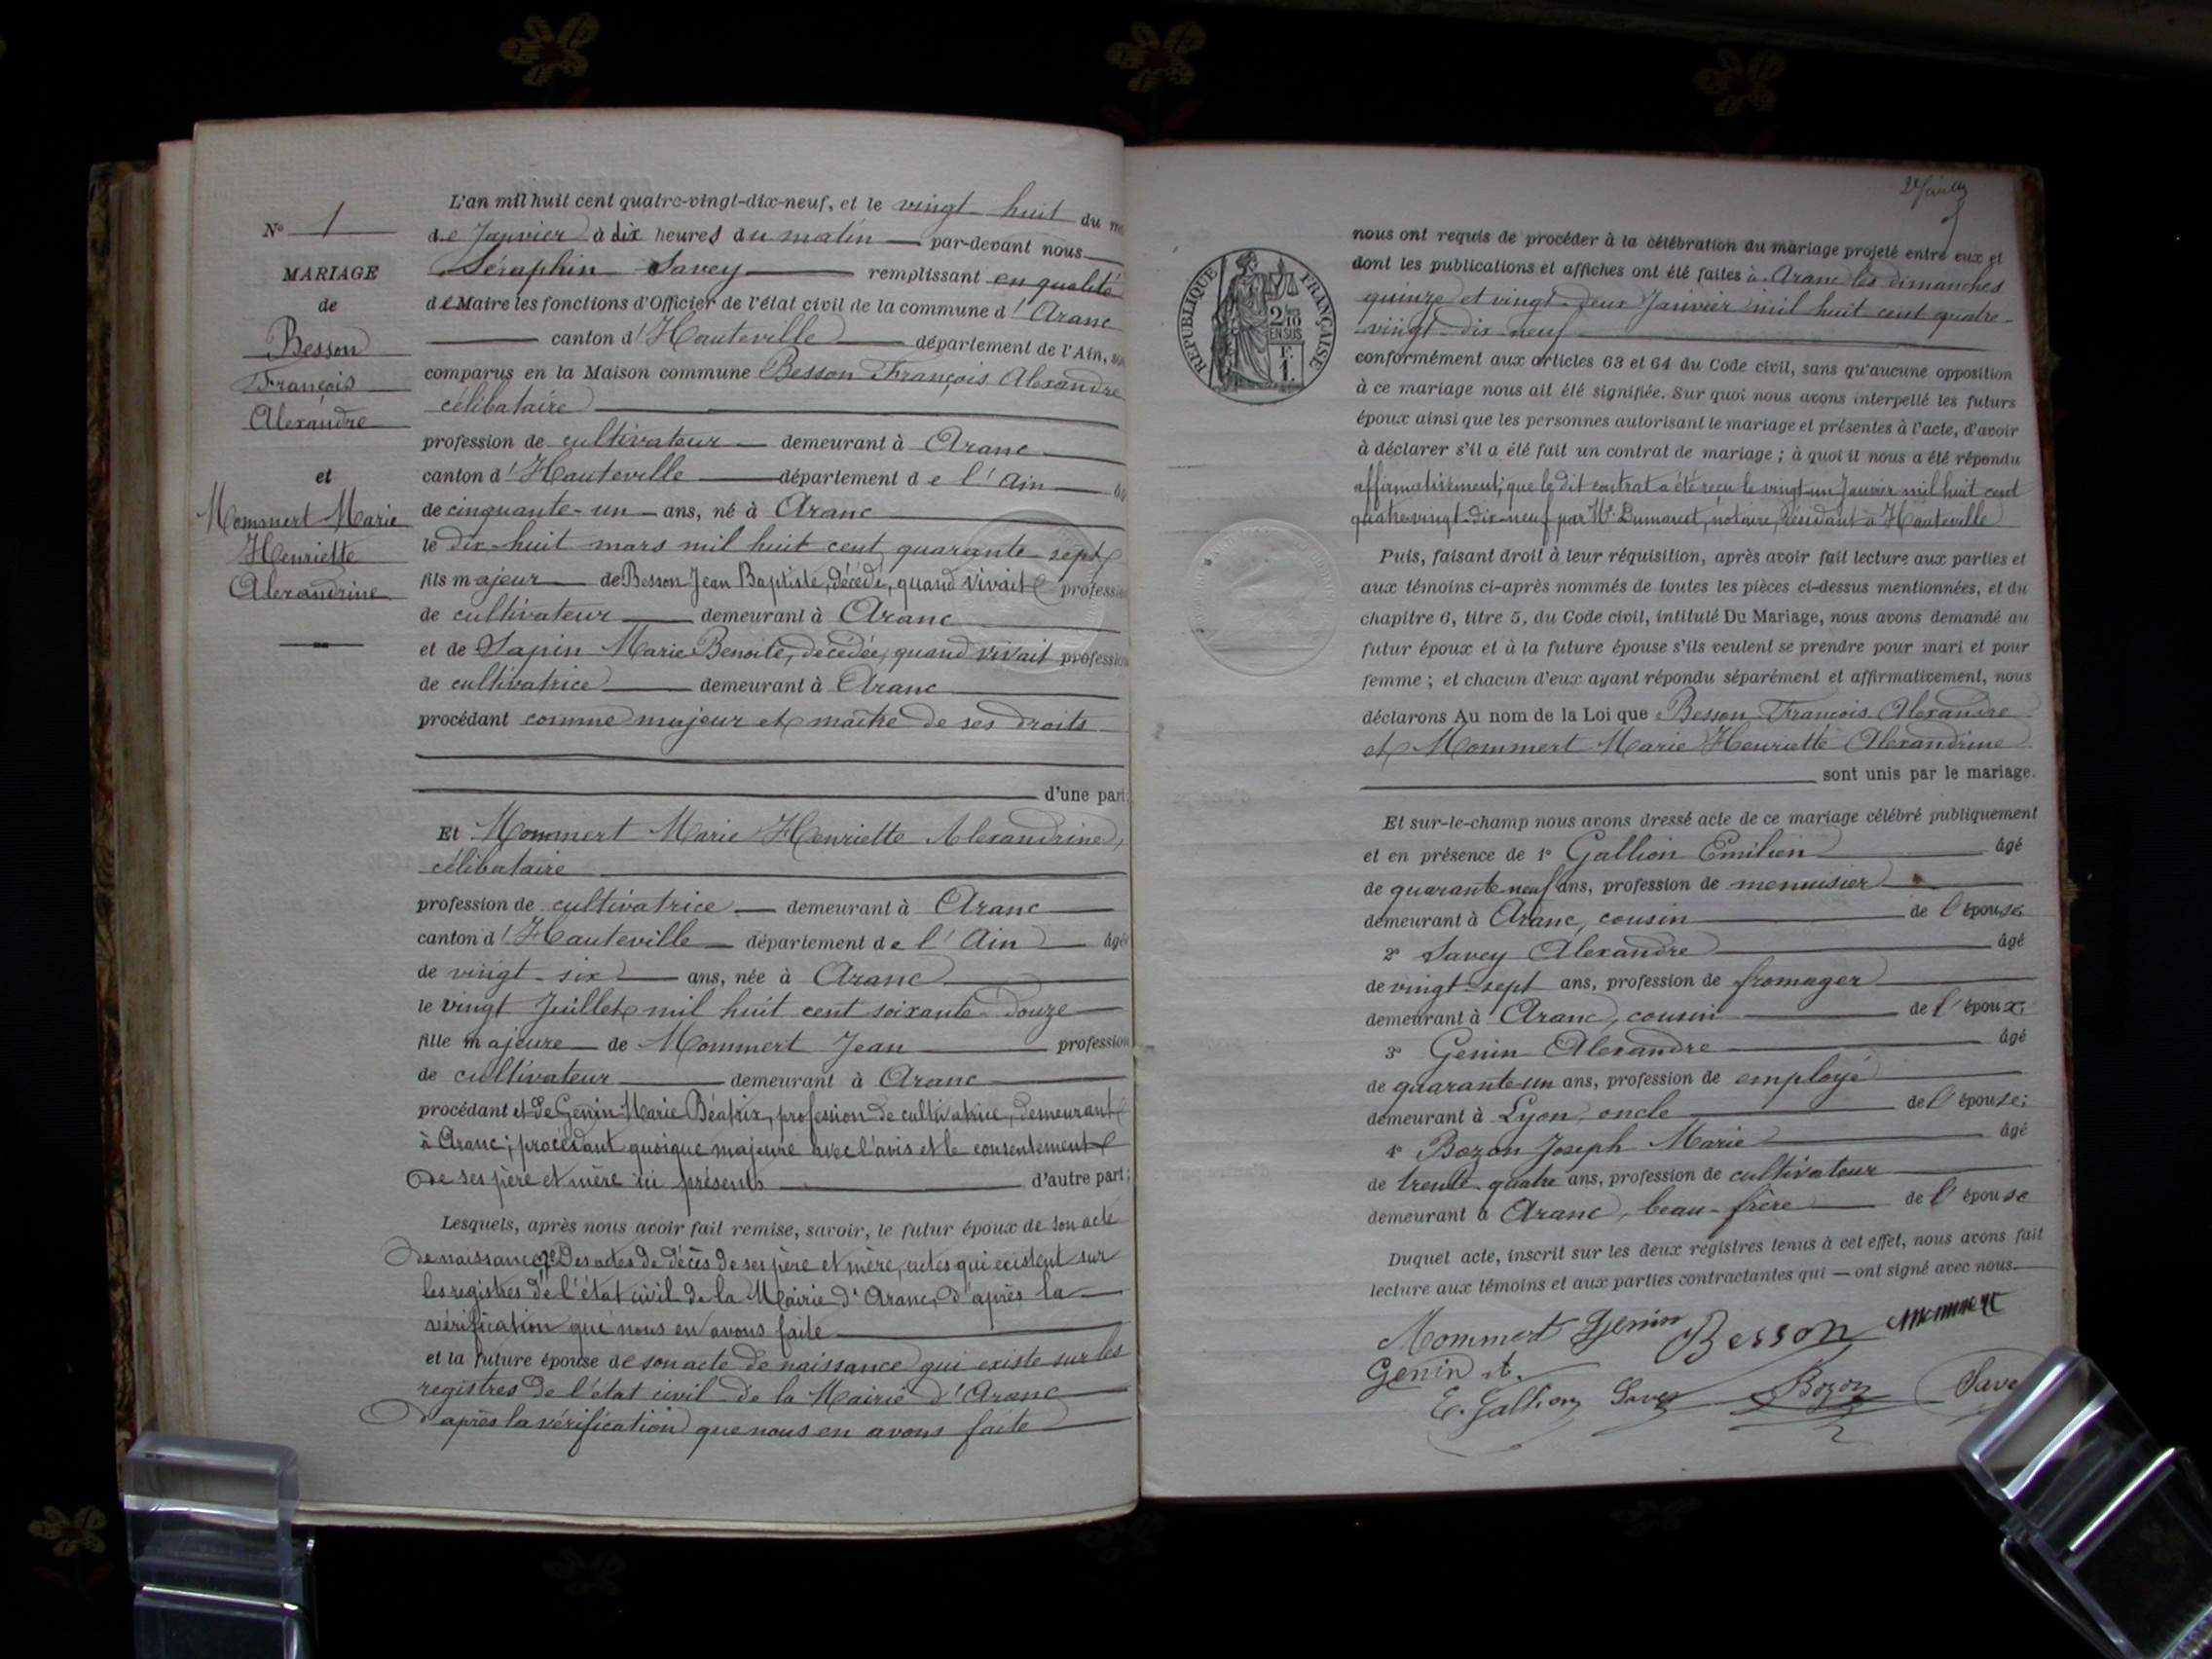 N° 1
MARIAGE
de
Besson
François
Alexandre
et
Mommert Marie
Henriette
Alexandrine
L'an mil huit cent quatre-vingt-dix-neuf, et le vingt-huit du
de Janvier à dix heures du matin par-devant nous
Séraphin Savey remplissant en qualité
de Maire les fonctions d'Officier de l'état civil de la commune d'Aranc
canton d'Hauteville département de l'Ain,
comparus en la Maison commune Besson François Alexandre
célibataire
profession de cultivateur demeurant à Aranc
canton d'Hauteville département de l'Ain
de cinquante-un ans, né à Aranc
le dix-huit mars mil huit cent quarante-sept
fils majeur de Besson Jean Baptiste, décédé, quand vivait profession
de cultivateur demeurant à Aranc
et de Sapin Marie Benoîte, décédée, quand vivait profession
de cultivatrice demeurant à Aranc
procédant comme majeur et maître de ses droits
d'une part;
Et Mommert Marie Henriette Alexandrine,
célibataire
profession de cultivatrice demeurant à Aranc
canton d'Hauteville département de l'Ain âgé
de vingt-six ans, née à Aranc
le vingt Juillet mil huit cent soixante-douze
fille majeure de Mommert Jean profession
de cultivateur demeurant à Aranc
procédant et de Genin Marie Béatrix, profession de cultivatrice, demeurant
à Aranc; procédant quoique majeure avec l'avis et le consentement
de ses père et mère ici présents d'autre part;
Lesquels, après nous avoir fait remise, savoir, le futur époux de son acte
de naissance, Des actes de décès de ses père et mère, actes qui existent sur
les registres de l'état civil de la Mairie d'Aranc, d'après la
vérification que nous en avons faite
et la future épouse de son acte de naissance qui existe sur les
registres de l'état civil de la Mairie d'Aranc
d'après la vérification que nous en avons faite
RÉPUBLIQUE FRANÇAISE
2/10
EN SUS
F.
1.
nous ont requis de procéder à la célébration du mariage projeté entre eux et
dont les publications et affiches ont été faites à Aranc les dimanches
quinze et vingt-deux Janvier mil huit cent quatre-
vingt-dix-neuf
conformément aux articles 63 et 64 du Code civil, sans qu'aucune opposition
à ce mariage nous ait été signifiée. Sur quoi nous avons interpellé les futurs
époux ainsi que les personnes autorisant le mariage et présentes à l'acte, d'avoir
à déclarer s'il a été fait un contrat de mariage; à quoi il nous a été répondu
affirmativement; que le dit contrat a été reçu le vingt-un Janvier mil huit cent
quatre-vingt-dix-neuf par Me Dumarest, notaire, résidant à Hauteville
Puis, faisant droit à leur réquisition, après avoir fait lecture aux parties et
aux témoins ci-après nommés de toutes les pièces ci-dessus mentionnées, et du
chapitre 6, titre 5, du Code civil, intitulé Du Mariage, nous avons demandé au
futur époux et à la future épouse s'ils veulent se prendre pour mari et pour
femme; et chacun d'eux ayant répondu séparément et affirmativement, nous
déclarons Au nom de la Loi que Besson François Alexandre
et Mommert Marie Henriette Alexandrine
sont unis par le mariage.
Et sur-le-champ nous avons dressé acte de ce mariage célébré publiquement
et en présence de 1° Gallion Emilien âgé
de quarante-neuf ans, profession de menuisier
demeurant à Aranc, cousin de l'épouse;
2° Savey Alexandre âgé
de vingt-sept ans, profession de fromager
demeurant à Aranc, cousin de l'époux;
3° Genin Alexandre âgé
de quarante-un ans, profession de employé
demeurant à Lyon, oncle de l'épouse;
4° Bozon Joseph Marie âgé
de trente-quatre ans, profession de cultivateur
demeurant à Aranc, beau-frère de l'épouse
Duquel acte, inscrit sur les deux registres tenus à cet effet, nous avons fait
lecture aux témoins et aux parties contractantes qui — ont signé avec nous.
Mommert Genin Besson Mommert
Genin A.
E. Gallion Savey Bozon Save